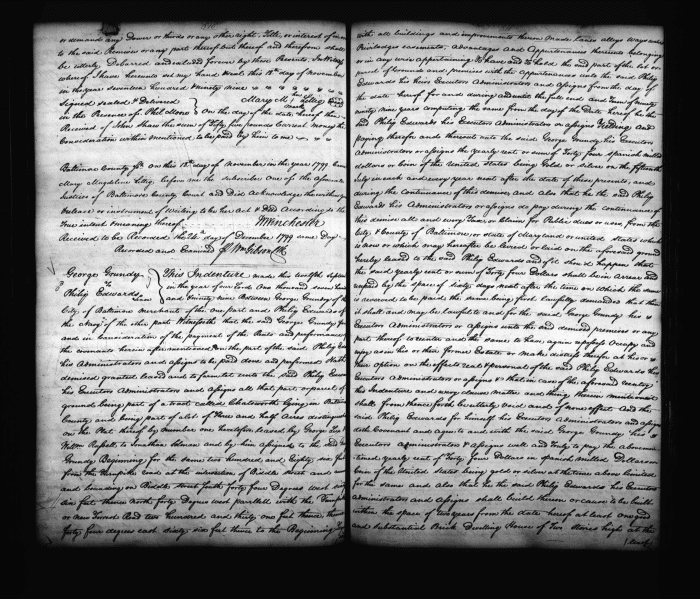 or demand any Dower or thirds or any other right, Title, or interest of in
to the said Premises or any part thereof but thereof and therefrom shall
be utterly Debarred and excluded forever by these Presents In Witness
whereof I have hereunto set my hand & seal this 18th day of November
in the year seventeen hundred & ninety nine
Signed sealed & Delivered
in the Presence of Phil Moore
Mary M her mark Littig
On the day of the date hereof then
Received of John the sum of Fifty pounds Current money the
Consideration within mentioned to be paid by him to me
Baltimore County Sc on this 18th day of November in the year 1799 Came
Mary Magdaline Littig before me the subscriber One of the
Justices of Baltimore County Court and Did Acknowledge the within
Release or instrument of Writing to be her Act & Deed According to the
true intent & meaning thereof
WWinchester
Received to be Recorded the 26th day of December 1799 same Day
Recorded and Examined Wm Gibson Clk
George Grundy
to
Philip Edwards
This Indenture made this twelfth
in the year of our Lord One thousand seven hundred
and Ninety nine Between George Grundy of the
City of Baltimore merchant of the one part and Philip Edwards of
the of the other part Witnesseth that the said George Grundy for
and in Consideration of the payment of the Rents and performance
the covenants herein after mentioned on the part of the said Philip
his Administrators and assigns to be paid done and performed Hath
demised granted leased and to farm let unto the said Philip
his Executors Administrators and assigns all that part or parcel of
ground being part of a tract called Chatsworth lying in
County and being part of a lot of three and half Acres
on the Plat thereof by number one heretofore leased by George
to Jonathan and by him assigned to the said
Grundy Beginning for the same two hundred and Eighty six feet
from the Turnpike road at the intersection of Biddle street and
and bounding on Biddle street South forty four Degrees west sixty
six feet thence north forty Degrees west parallel with the Turnpike
or new Road two hundred and thirty one feet thence
forty four degrees east sixty six feet thence to the Beginning
with all buildings and improvements thereon made Lanes alleys ways
Priviledges easements, Advantages and Appurtenances thereunto belonging
or in any wise appertaining To have and to hold the said part of the lot or
parcel of Ground and premises with the appurtenances unto the said Philip
Edwards his Executors Administrators and assigns from the day of
the date hereof for and during and until the full end and term of ninety
ninty nine years computing the same from the day of the Date hereof he the
said Philip Edwards his Executors Administrators or assigns Yielding and
paying therefor and thereout unto the said George Grundy his Executors
Administrators or assigns the yearly rent or sum of Forty four Spanish milled
dollars or coin of the United States being Gold or silver on the fifteenth
July in each and every year next after the date of these presents and
during the continuance of this demise, and also that he the said Philip
Edwards his Administrators or assigns do pay during the continuance of
this demise all and every Tax or Claim for Public dues or cess from the
City & County of Baltimore or State of Maryland or united States which
is now or which may hereafter be levied or laid on the aforesaid ground
hereby leased to the said Philip Edwards and if it should happen that
the said yearly rent or sum of Forty four Dollars shall be in arrear and
unpaid by the space of sixty days next after the time on which the same
is covenanted to be paid the same being first lawfully demanded that then
it shall and may be lawful to and for the said George Grundy his
Executors Administrators or assigns unto the said demised premises or any
part thereof to enter and the same to have, again repossess Occupy and
enjoy as in his or their former Estate or make distress thereof at his or
their option on the effects real & personal of the said Philip Edwards his
Executors Administrators or assigns & that in case of the aforesaid reentry
this Indenture and every clause matter and thing therein mentioned
shall from thenceforth be utterly void and of none effect. And the
said Philip Edwards for himself his Executors Administrators and assigns
doth Covenant and agree to and with the said George Grundy his
Executors Administrators & assigns well and truly to pay the above
yearly rent of forty four Dollars in spanish milled Dollars or
Coin of the United States being gold or silver at the time above limited
for the same and also that he the said Philip Edwards his Executors
administrators and assigns shall build thereon or cause to be built
within the space of two years from the date hereof at least one good
and substantial Brick Dwelling House of two stories high